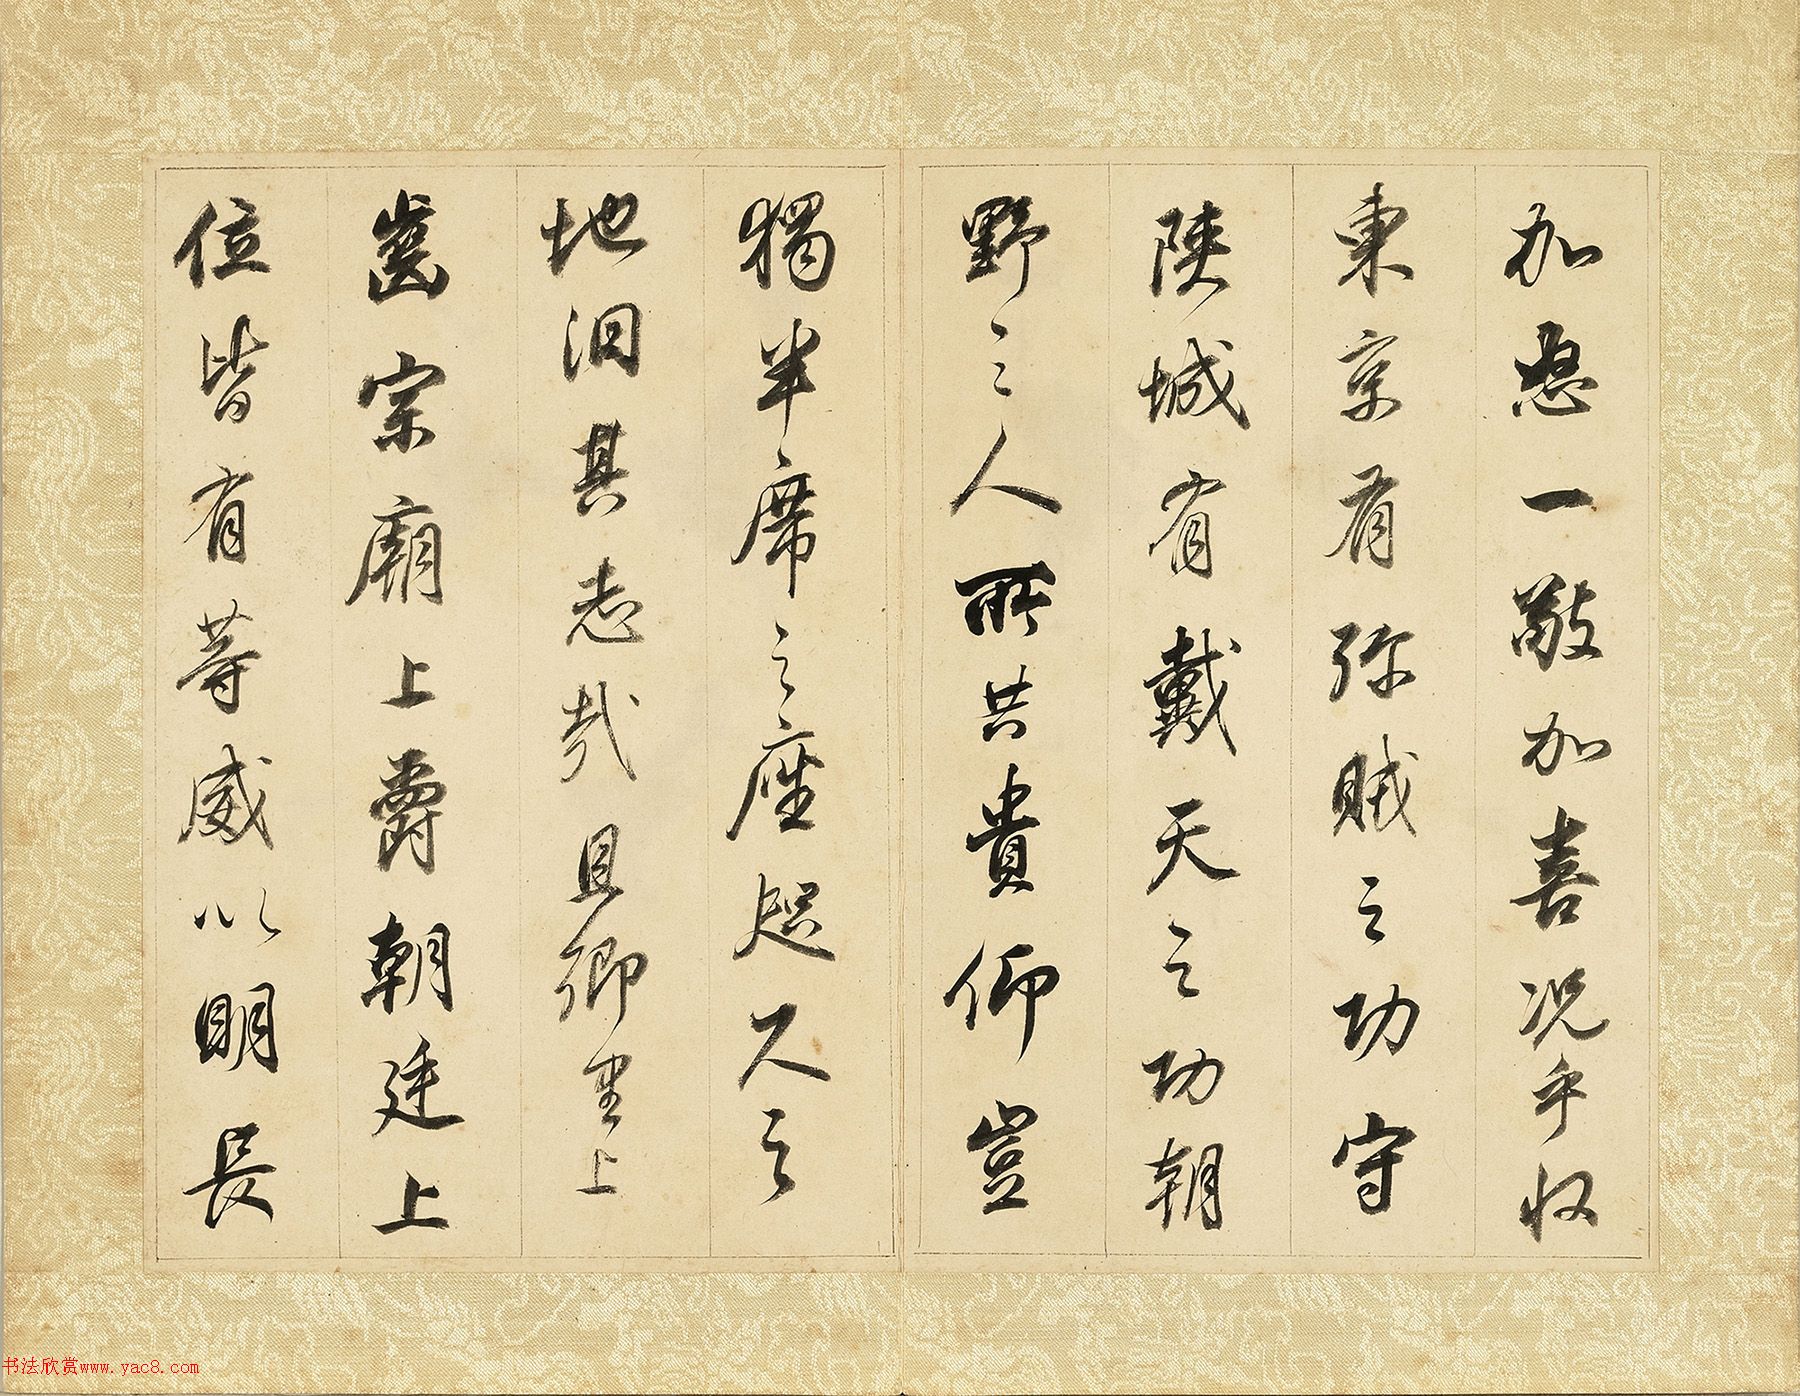 加怒一敬加喜况手收
東京有殄賊之功守
陝城有戴天之功朝
野之人所共貴仰豈
獨半席之座咫尺之
地汩其志哉且鄉里上
齒宗廟上爵朝廷上
位皆有等威以明長
书法欣赏www.yac8.com